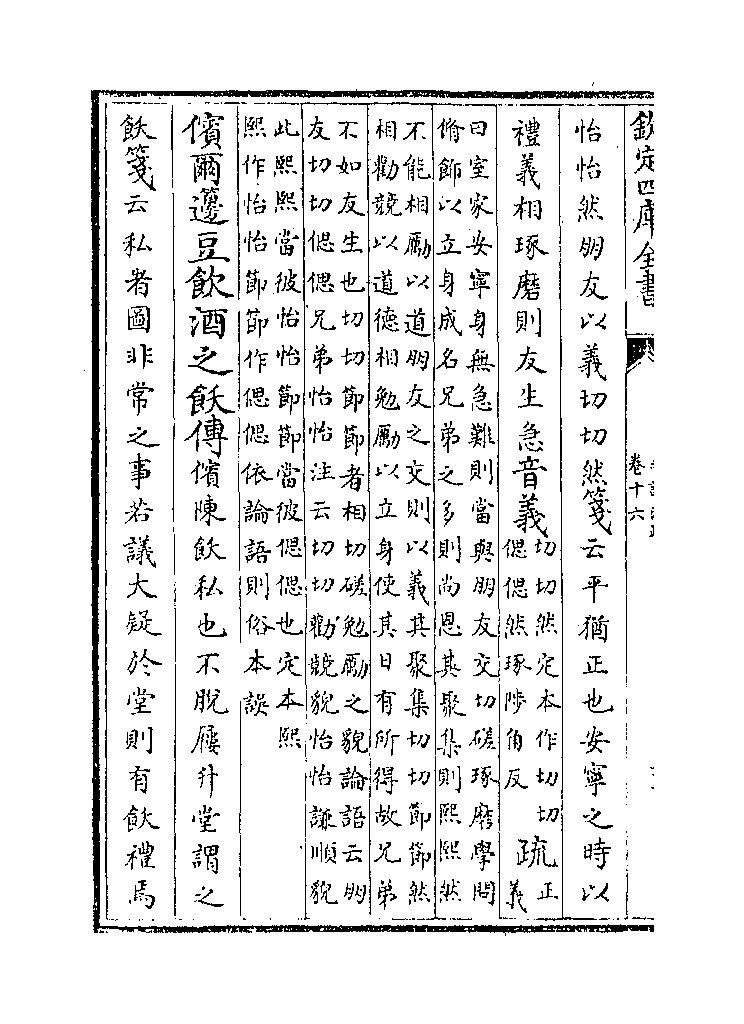 欽定四庫全書
卷十六
怡怡然朋友以義切切然箋云平猶正也安寧之時以
禮義相琢磨則友生急音義切切然定本作切切
偲偲然琢陟角反
疏正
義
曰室家安寧身無急難則當與朋友交切磋琢磨學問
脩飾以立身成名兄弟之多則尚恩其聚集則熙熙然
不能相勵以道朋友之交則以義其聚集切切節節然
相勸競以道德相勉勵以立身使其日有所得故兄弟
不如友生也切切節節者相切磋勉勵之貌論語云朋
友切切偲偲兄弟怡怡注云切切勸競貌怡怡謙順貌
此熙熙當彼怡怡節節當彼偲偲也定本熙
熙作怡怡節節作偲偲依論語則俗本誤
儐爾籩豆飲酒之飫傳儐陳飫私也不脫屨升堂謂之
飫箋云私者圖非常之事若議大疑於堂則有飫禮焉